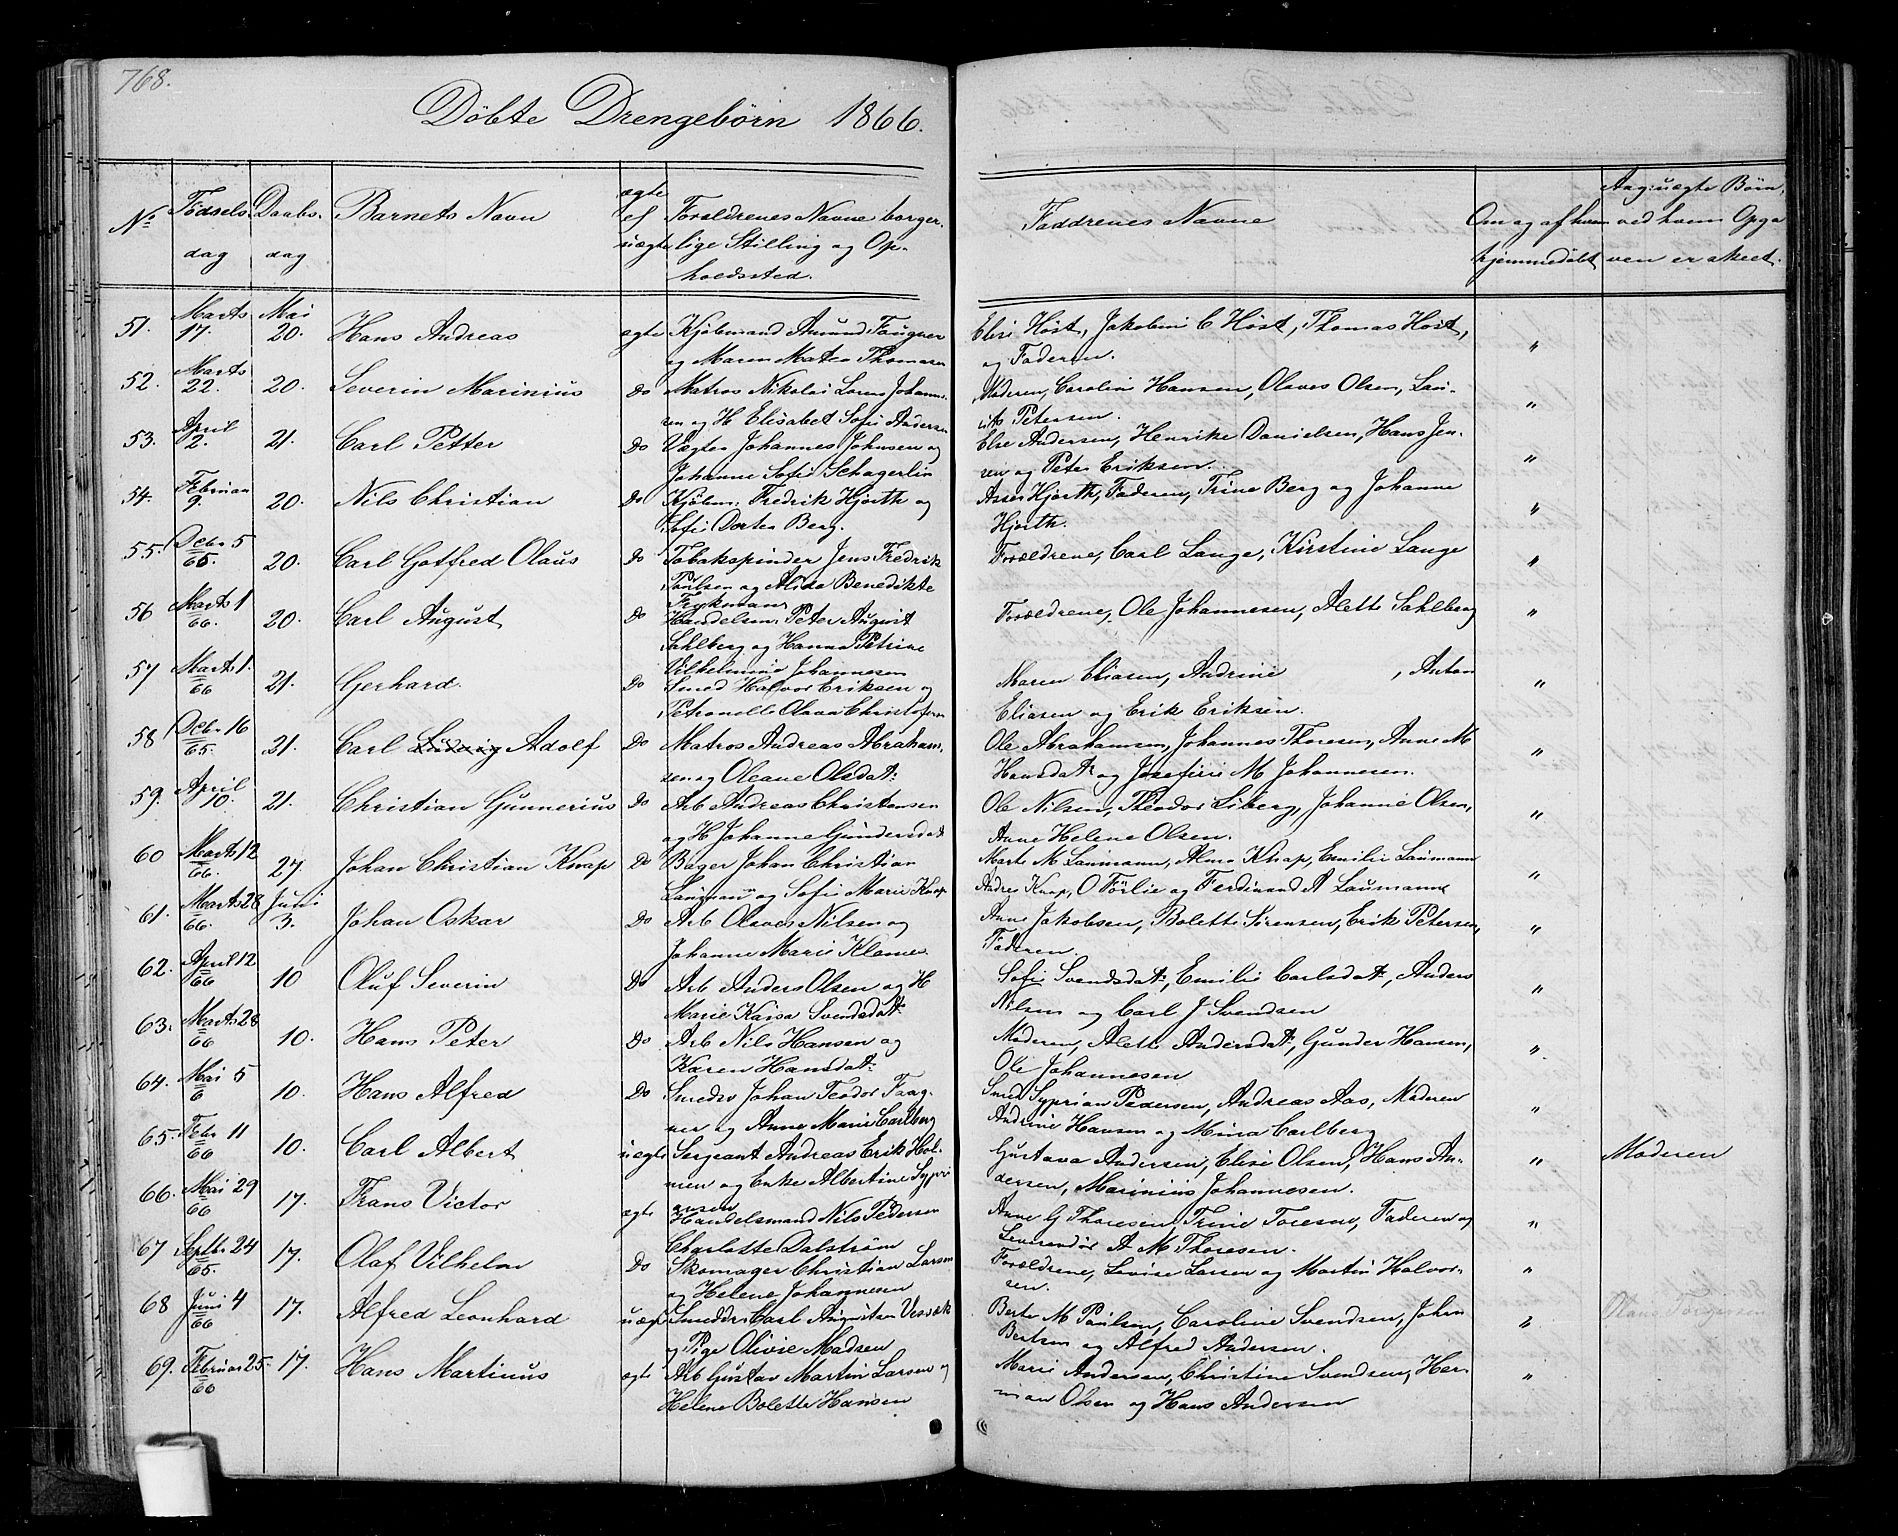 768.
Döbte Drengebörn 1866.
No
Födsels
dag
Daabs
dag
Barnets Navn
ægte
el
uægte
Foraldrenes Navne borger
lige Stilling og Op
holdssted.
Faddrenes Navne
Om og af hvem
hjemmedöbt
Ang: uægte Börn
ved hvem Opga
ven er skeet.
51. Marts 17. Mai 20. Hans Andreas ægte Kjöbmand Amund Faugner Elise Höst, Jakobine C Höst, Thomas Höst, "
og Maren Matea Thomasen og Faderen.
52. Marts 22. 20. Severin Marinius Do Matros Nikolai Lorens Johann- Moderen, Caroline Hansen, Olaves Olsen, Lau- "
sen og H Elisabet Sofie Andersen rits Petersen.
53. April 2. 21. Carl Petter Do Vægter Johannes Johnsen og Else Andersen, Henrike Danielsen, Hans Jen- "
Johanne Sofie Schagerlin sen og Peter Eriksen.
54. Februar 9. 20. Nils Christian Do Kjöbm: Fredrik Hjorth og Asser Hjorth, Faderen, Trine Berg og Johanne "
Sofie Dortea Berg. Hjorth.
55. Decbr 5 65. 20. Carl Gotfred Olaus Do Tobakspinder Jens Fredrik Forældrene, Carl Lange, Kirstine Lange "
Paulsen og Alida Benedikte
Frykman
56 Marts 1 66. 20. Carl August Do Handelsm: Peter August Forældrene, Ole Johannesen, Alette Sahlberg "
Sahlberg og Hanna Petrine
Vilhelmine Johannesen
57 Marts 1. 66 21. Gerhard. Do Smed Halvor Eriksen og Maren Eliasen, Andrine , Anton "
Petronelle Olava Christofersen Eliasen og Erik Eriksen.
58 Decbr 16 65. 21. Carl Ludvig Adolf Do Matros Andreas Abraham- Ole Abrahamsen, Johannes Thoresen, Anne M "
sen og Oleane Olsdat: Hansdat: og Josefine M Johannesen.
59. April 10. 21. Christian Gunnerius Do Arb Andreas Christansen Ole Nilsen, Theodor Siberg, Johanne Olsen, "
og H Johanne Gundersdat Anne Helene Olsen.
60 Marts 12 66. 27. Johan Christian Knap Do Bager Johan Christian Marte M Laumann, Alma Knap, Emilie Laumann "
Laumann og Sofie Marie Knap Andres Knap, O Förlie og Ferdinand A Laumann
61. Marts 28 66. Juni 3. Johan Oskar Do Arb Olaves Nilsen og Anne Jakobsen, Bolette Sörensen, Erik Petersen, "
Johanne Marie Klome Faderen.
62. April 12 66 10 Oluf Severin Do Arb Anders Olsen og H Sofie Svendsdat:, Emilie Carlsdat:, Anders "
Marie Kaisa Svendsdat: Nilsen og Carl J Svendsen
63. Marts 28 66 10. Hans Peter Do Arb Nils Hansen og Moderen, Alette Andersdat:, Gunder Hansen, "
Karen Hansdat: Ole Johannesen
64. Mai 5 6 10. Hans Alfred Do Smedsv Johan Teodor Faag- Smed Syprian Pedersen, Andreas Aas, Moderen "
ner og Anne Marie Carlberg Andrine Hansen og Mina Carlberg
65. Febr 11 66 10. Carl Albert uægte Sergeant Andreas Erik Hol- Gustava Andersen, Elise Olsen, Hans An- " Moderen
men og Enke Albertine Sypri dersen, Marinius Johannesen.
ansen
66. Mai 29 66 17. Frans Victor ægte Handelsmand Nils Pedersen Anne G Thoresen, Trine Toresen, Faderen og "
Charlotte Dalström Leverendör A M Thoresen.
67 Septbr 24 65. 17. Olaf Vilhelm Do Skomager Christian Larsen Forældrene, Lovise Larsen og Martin Halvor- "
og Helene Johannesen sen.
68 Juni 4 66 17. Alfred Leonhard uægt Smeddr Carl Augustan Berte M Paulsen, Caroline Svendsen, Johan "
og Pige Olivie Madsen Bertsen og Alfred Andersen.
69. Februar 25. 66 17. Hans Martinus ægte Arb Gustav Martin Larsen og Marie Andersen, Christine Svendsen, Her- "
Helene Bolette Hansen man Olsen og Hans Andersen